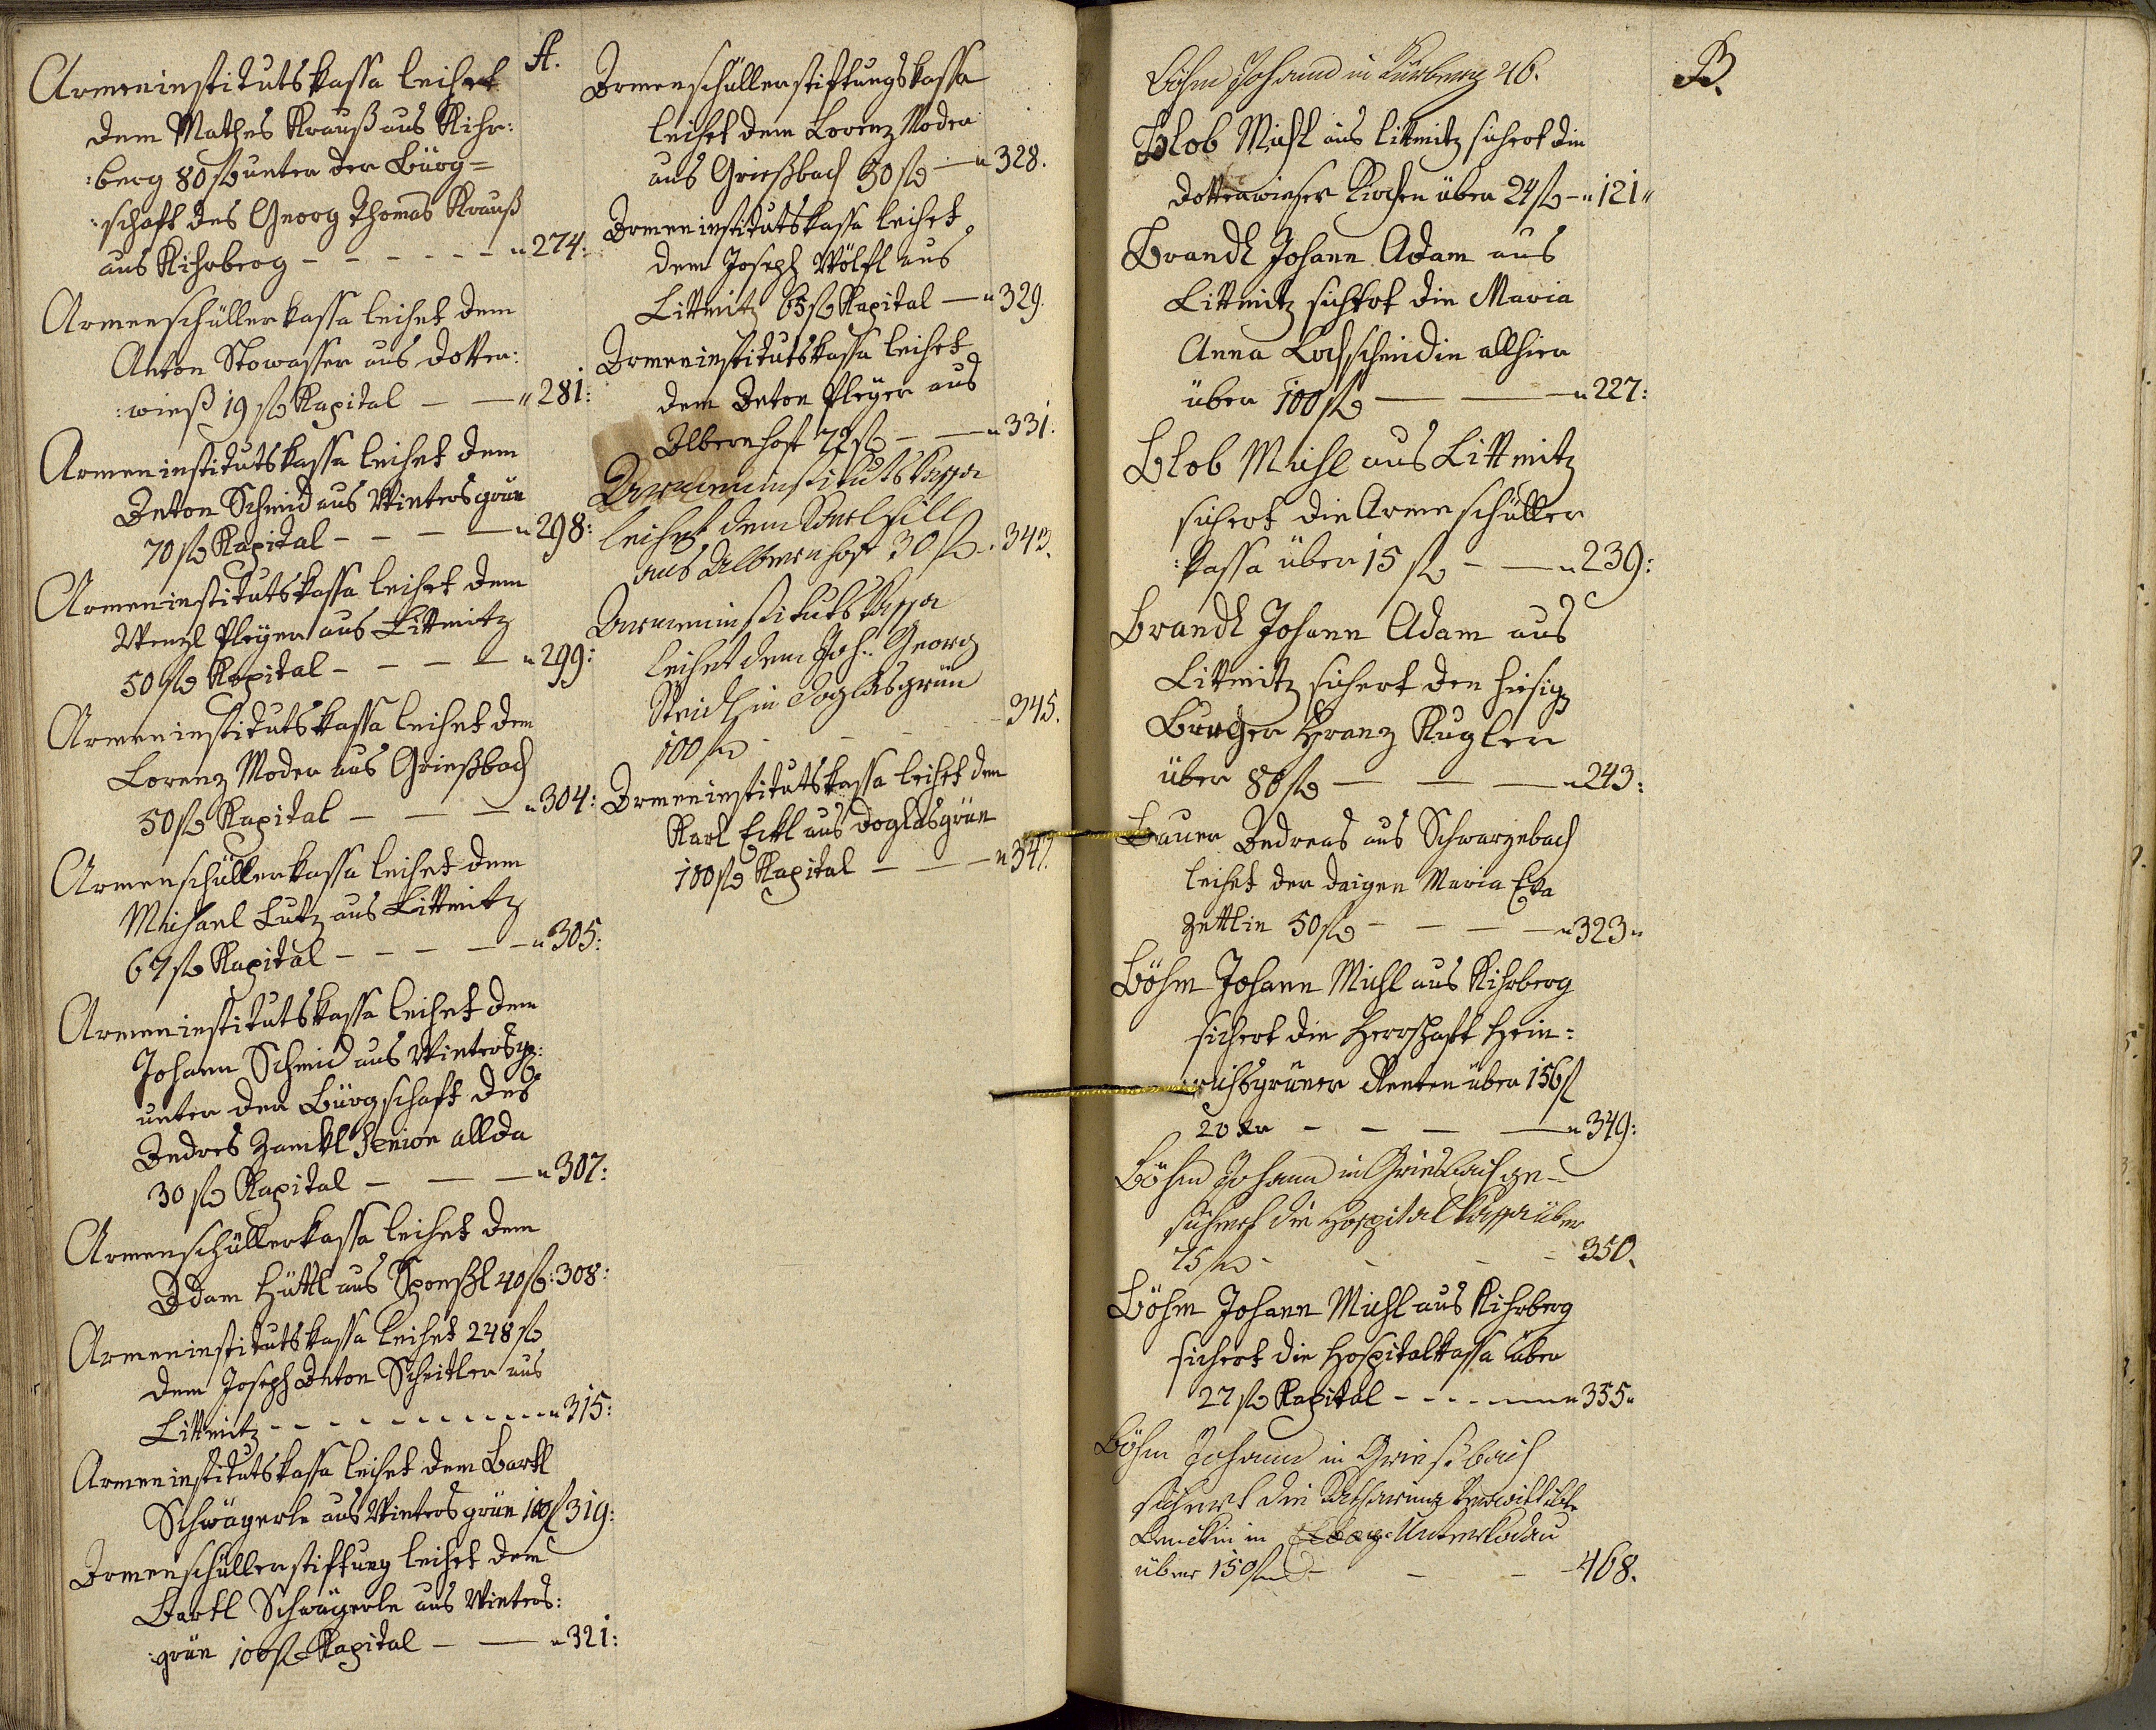 A.
Armeninstitutskassa leihet
dem Mathes Krauß aus Kihr:
:berg 80 fl unter der Bürg=
:schaft des Georg Thomas Krauß
aus Kihrberg - - - - - - " 274:
Armenschüllerkassa leihet dem
Anton Stowasser aus Dotter:
:wieß 19 fl Kapital - - " 281:
Armeninstitutskassa leihet dem
Anton Schmid aus Wintersgrün
70 fl Kapital - - - - " 298:
Armeninstitutskassa leihet dem
Wenzl Pleyer aus Littmitz
50 fl Kapital - - - - " 299:
Armeninstitutskassa leihet dem
Lorenz Moder aus Grießbach
50 fl Kapital - - - " 304:
Armenschüllerkassa leihet dem
Michael Lutz aus Littmitz
67 fl Kapital - - - - - " 305:
Armeninstitutskassa leihet dem
Johann Schmid aus Wintersg:
unter der Bürgschaft des
Andres Zankl Senior allda
30 fl Kapital - - - " 307:
Armenschüllerkassa leihet dem
Adam Hüttl aus Sponsl 40 fl: 308:
Armeninstitutskassa leihet 248 fl
dem Joseph Anton Scheitler aus
Littmitz - - - - - - - - - " 315:
Armeninstitutskassa leihet dem Bartl
Schwägerle aus Wintersgrün 100 fl 319:
Armenschüllerstiftung leihet dem
Bartl Schwägerle aus Winters:
:grün 100 fl Kapital - - " 321:
Armenschüllerstiftungskassa
leihet dem Lorenz Moder
aus Grießbach 50 fl - " 328.
Armeninstitutskassa leihet
dem Joseph Wölfl aus
Littmitz 65 fl Kapital - " 329.
Armeninstitutskassa leihet
dem Anton Pleyer aus
Albernhof 72 fl - - " 331.
Armeninstitutskassa
leihet dem Karl Hill
aus Albernhof 30 fl - 343.
Armeninstitutskassa
leihet dem Joh. Georg
Steidl in Doglasgrün
100 fl - - - - 345.
Armeninstitutskassa leihet dem
Karl Eckl aus Doglasgrün
100 fl Kapital - - - " 347.
B.
Böhm Johann in Kürberg 46.
Blob Michl aus Littmitz sichert die
Dotterwieser Kirchen über 24 fl - " 121 "
Brandl Johann Adam aus
Littmitz sichert die Maria
Anna Lochschmidin allhier
über 100 fl - - - " 227:
Blob Michl aus Littmitz
sichert die Armeschüller
:kassa über 15 fl - - " 239:
Brandl Johann Adam aus
Littmitz sichert den hiesig
Burger Franz Kugler
über 80 fl - - - " 243:
Bauer Andreas aus Schwarzebach
leihet der daigen Maria Eva
Zettlin 50 fl - - - - " 323 "
Böhm Johann Michl aus Kihrberg
sichert die Herrschaft Hein:
:richsgrüner Renten über 156 fl
20 kr - - - - " 349:
Böhm Johann in Griesbach ge-
sichert die Hospitalkassa über
75 fl - - - 350.
Böhm Johann Michl aus Kihrberg
sichert die Hospitalkassa über
27 fl Kapital - - - - - " 355 "
Böhm Johann in Griesbach
sichert die Katharina verwittibte
in Unterkodau
über 150 fl - - - 468.